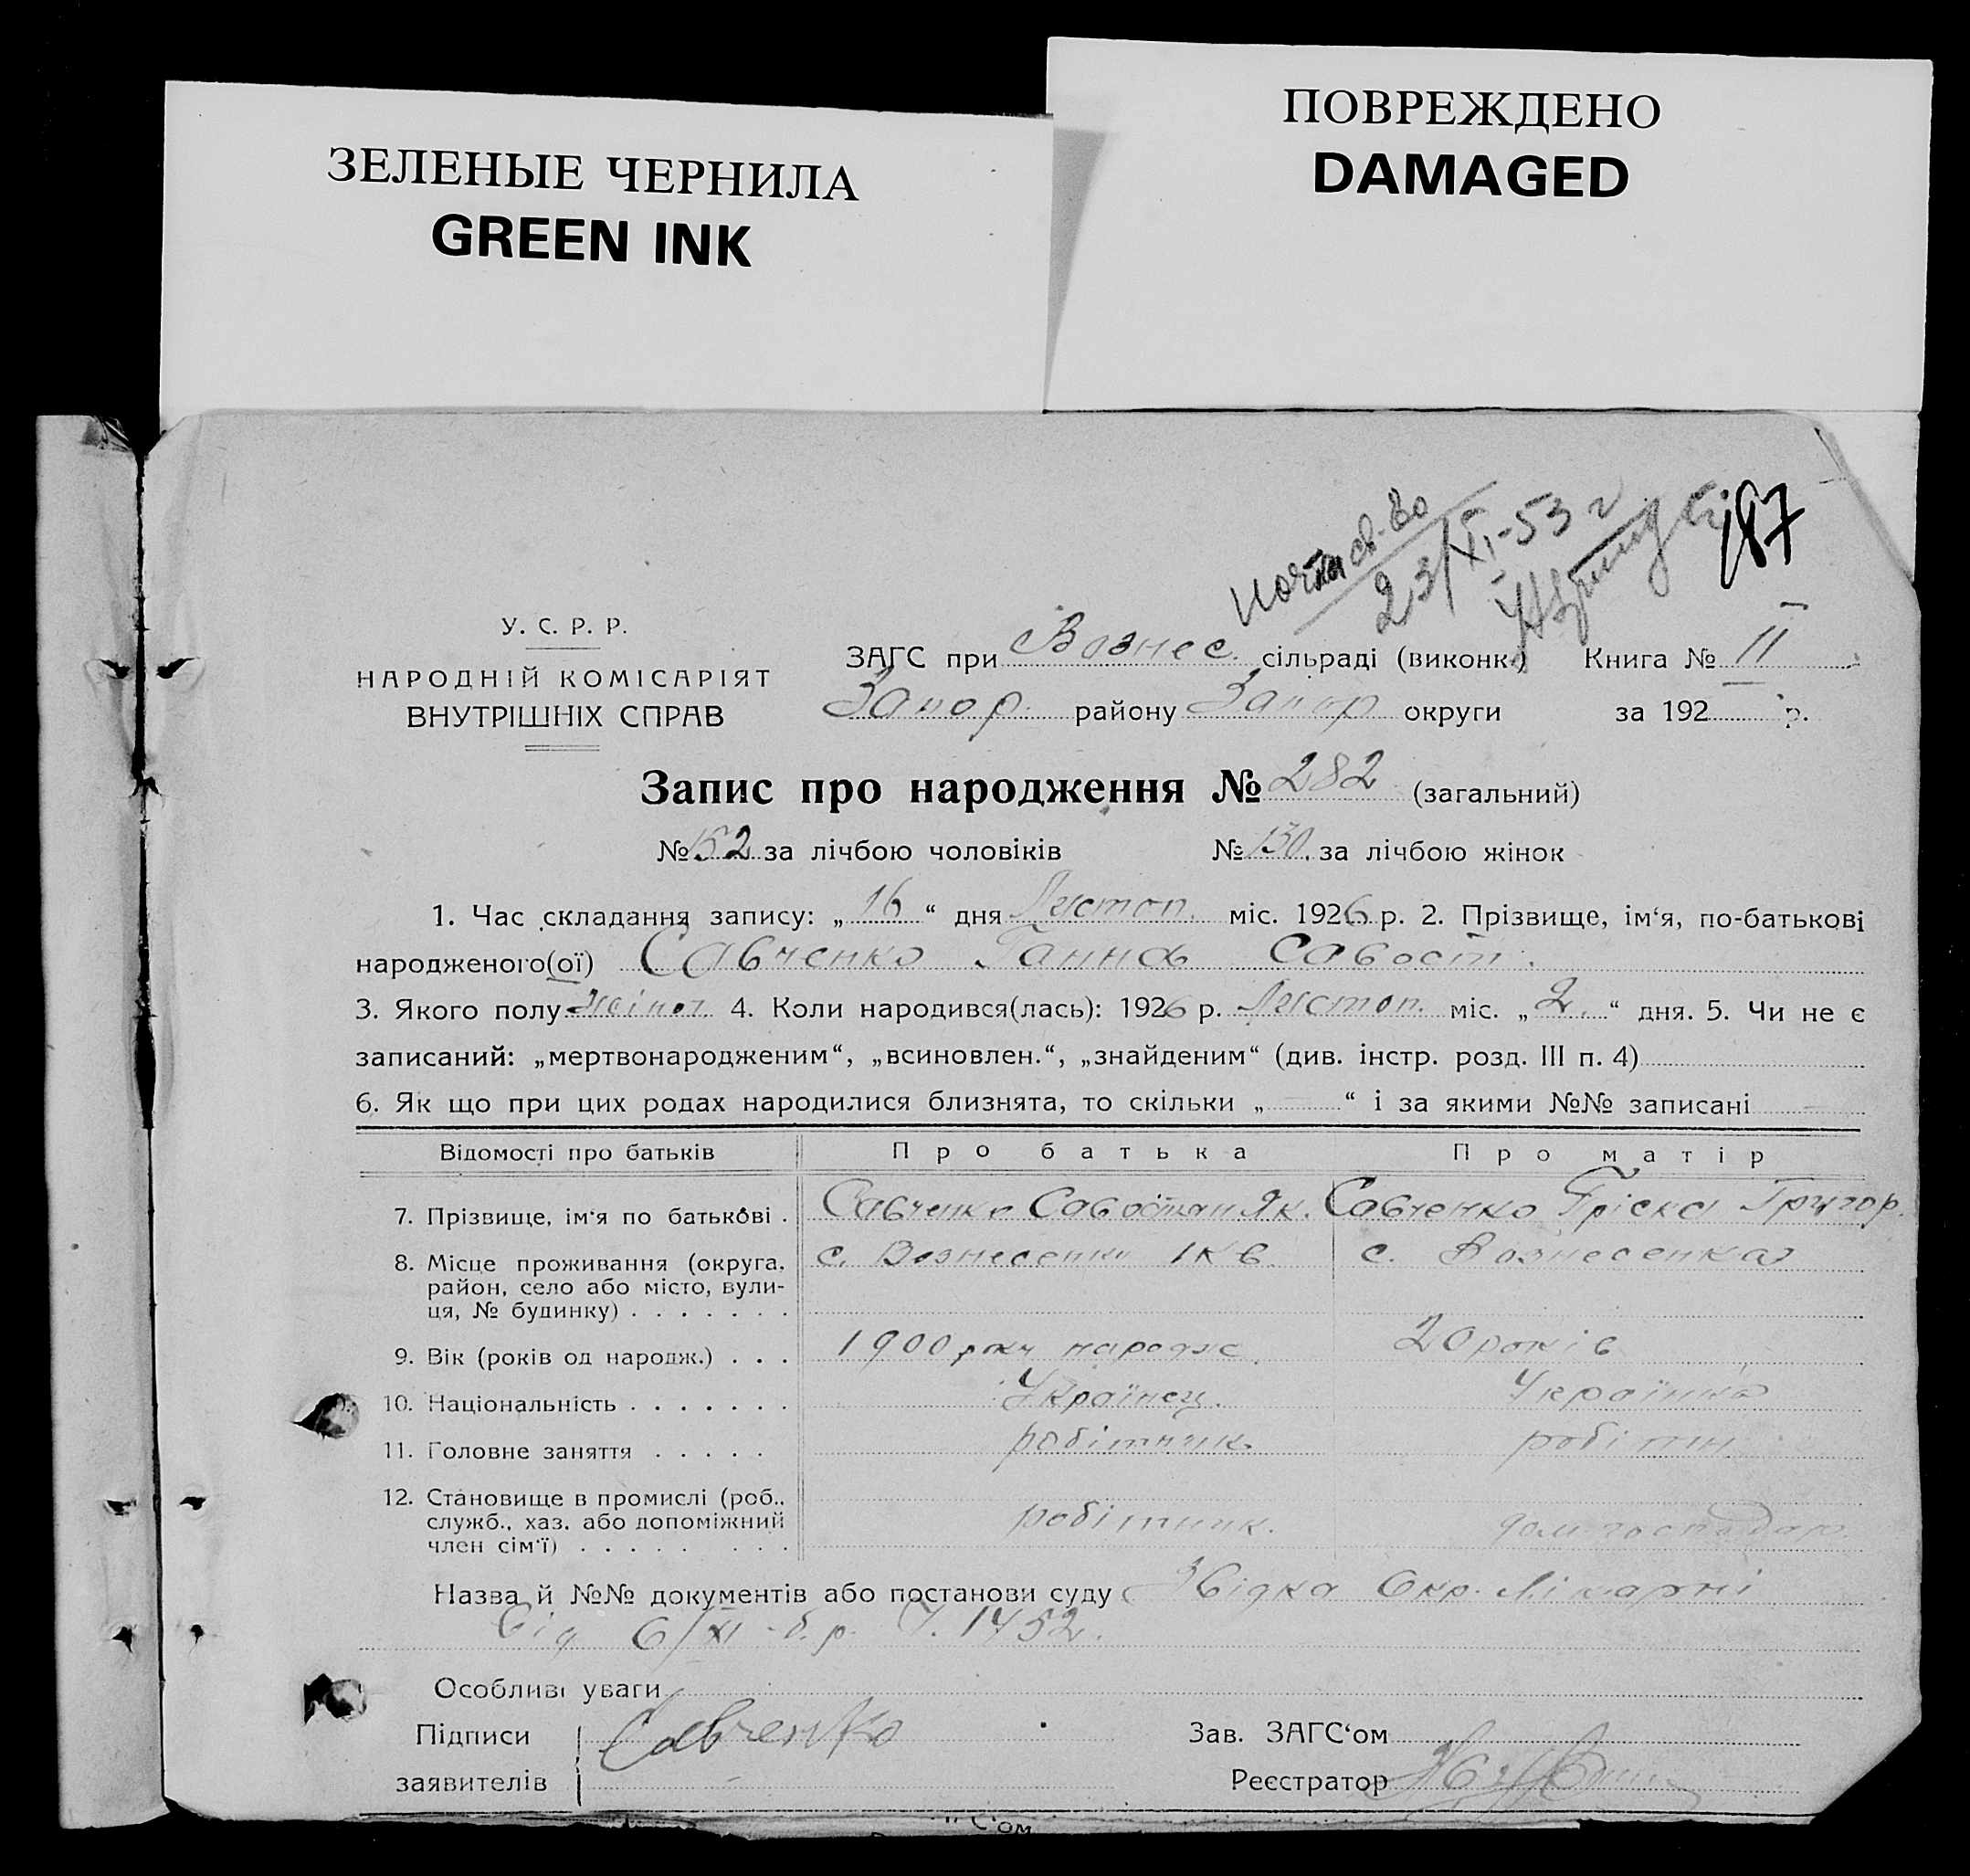 ЗЕЛЕНЫЕ ЧЕРНИЛА
GREEN INK
ПОВРЕЖДЕНО
DAMAGED
187
23/XI-53 г
У. С. Р. Р.
НАРОДНІЙ КОМІСАРІЯТ
ВНУТРІШНІХ СПРАВ
ЗАГС при Вознес. сільраді (виконк.) Книга № II
Запор. району Запор округи за 192 р.
Запис про народження № 282 (загальний)
№ 152 за лічбою чоловіків № 130. за лічбою жінок
1. Час складання запису: „16“ дня Листоп. міс. 1926 р. 2. Прізвище, ім‘я, по-батькові
народженого(ої) Савченко Ганна Савост.
3. Якого полу жіноч. 4. Коли народився(лась): 1926 р. Листоп. міс. „2.“ дня. 5. Чи не є
записаний: „мертвонародженим“, „всиновлен.“, „знайденим“ (див. інстр. розд. III п. 4)
6. Як що при цих родах народилися близнята, то скільки „ “ і за якими №№ записані
Відомості про батьків Про батька Про матір
7. Прізвище, ім‘я по батькові . Савченко Савостян Як. Савченко Пріска Григор.
8. Місце проживання (округа, с. Вознесенка 1 кв. с. Вознесенка
район, село або місто, вули-
ця, № будинку) . . . . . . .
9. Вік (років од народж.) . . . 1900 року народж. 20 років
10. Національність . . . . . . . Українец. Українка
11. Головне заняття . . . . . робітник робітн.
12. Становище в промислі (роб.,
служб., хаз. або допоміжний робітник. дом. господар.
член сім‘ї) . . . . . . . .
Назва й №№ документів або постанови суду Звідка Окр. Лікарні
від 6/XI б.р. Ч. 1452.
Особливі уваги
Підписи Савченко Зав. ЗАГС‘ом
заявителів Реєстратор